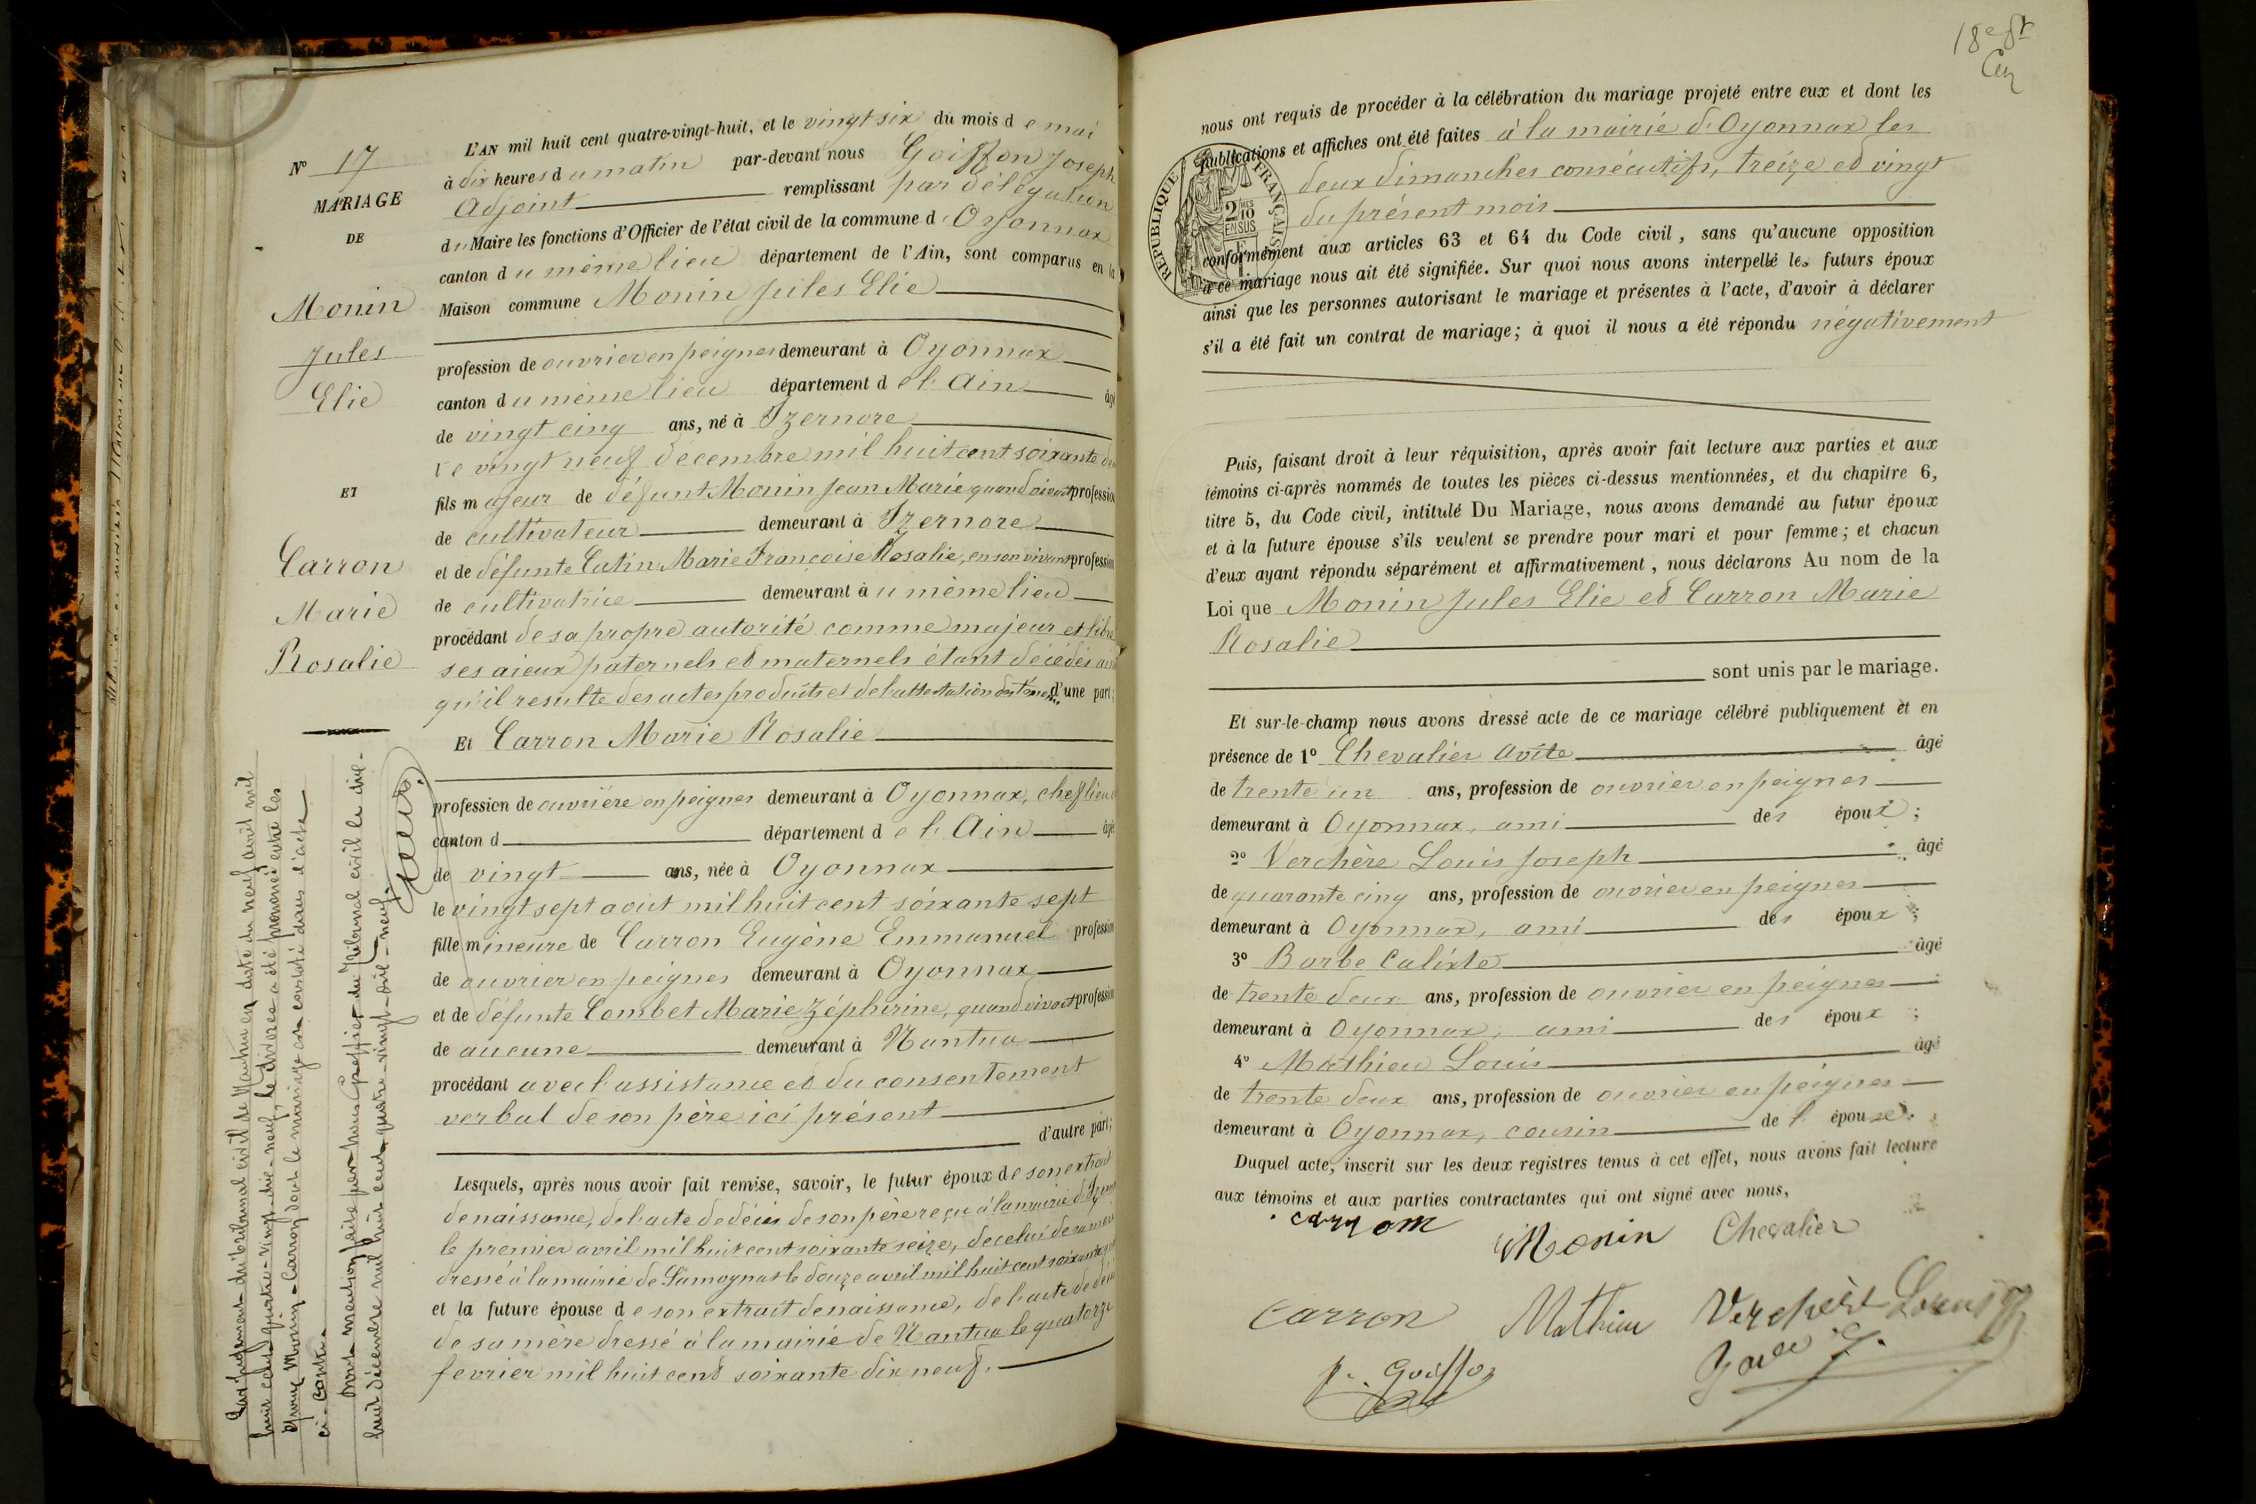 N° 17
MARIAGE
DE
Monin
Jules
Elie
ET
Carron
Marie
Rosalie
L'AN mil huit cent quatre-vingt-huit, et le vingt six du mois de mai
à dix heures du matin par-devant nous Goiffon Joseph
Adjoint remplissant par délégation
du Maire les fonctions d'Officier de l'état civil de la commune d'Oyonnax
canton du même lieu département de l'Ain, sont comparus en la
Maison commune Monin Jules Elie
profession de ouvrier en peignes demeurant à Oyonnax
canton du même lieu département de l'Ain âgé
de vingt cinq ans, né à Izernore
le vingt neuf décembre mil huit cent soixante deux
fils majeur de défunt Monin Jean Marie quand vivait profession
de cultivateur demeurant à Izernore
et de défunte Cutin Marie Françoise Rosalie, en son vivant profession
de cultivatrice demeurant au même lieu
procédant de sa propre autorité comme majeur et libre
ses aieux paternels et maternels étant décédés ainsi
qu'il resulte des actes produits et de l'attestation des témoins d'une part;
Et Carron Marie Rosalie
profession de ouvrière en peignes demeurant à Oyonnax, chef lieu de
canton d département de l'Ain âgé
de vingt ans, née à Oyonnax
le vingt sept aout mil huit cent soixante sept
fille mineure de Carron Eugène Emmanuel profession
de ouvrier en peignes demeurant à Oyonnax
et de défunte Combet Marie Zéphirine, quand vivait profession
de aucune demeurant à Nantua
procédant avec l'assistance et du consentement
verbal de son père ici présent
d'autre part;
Lesquels, après nous avoir fait remise, savoir, le futur époux de son extrait
de naissance, de l'acte de décès de son père reçu à la mairie d'Izernore
le premier avril mil huit cent soixante seize, de celui de sa mère
dressé à la mairie de Samognat le douze avril mil huit cent soixante
et la future épouse de son extrait de naissance, de l'acte de décès
de sa mère dressé à la mairie de Nantua le quatorze
fevrier mil huit cent soixante dix neuf.
Par jugement du tribunal civil de Nantua en date du neuf avril mil
huit cent quatre-vingt-dix-neuf, le divorce a été prononcé entre les
époux Monin - Carron dont le mariage est constaté dans l'acte
ci-contre.
Dont mention faite par nous Greffier du Tribunal civil le dix-
huit décembre mil huit cent quatre-vingt-dix-neuf.
18e ft
nous ont requis de procéder à la célébration du mariage projeté entre eux et dont les
publications et affiches ont été faites à la mairie d'Oyonnax les
deux dimanches consécutifs, treize et vingt
du présent mois
RÉPUBLIQUE FRANÇAISE
2/10 EN SUS
conformément aux articles 63 et 64 du Code civil, sans qu'aucune opposition
à ce mariage nous ait été signifiée. Sur quoi nous avons interpellé les futurs époux
ainsi que les personnes autorisant le mariage et présentes à l'acte, d'avoir à déclarer
s'il a été fait un contrat de mariage; à quoi il nous a été répondu négativement
Puis, faisant droit à leur réquisition, après avoir fait lecture aux parties et aux
témoins ci-après nommés de toutes les pièces ci-dessus mentionnées, et du chapitre 6,
titre 5, du Code civil, intitulé Du Mariage, nous avons demandé au futur époux
et à la future épouse s'ils veulent se prendre pour mari et pour femme; et chacun
d'eux ayant répondu séparément et affirmativement, nous déclarons Au nom de la
Loi que Monin Jules Elie et Carron Marie
Rosalie
sont unis par le mariage.
Et sur-le-champ nous avons dressé acte de ce mariage célébré publiquement et en
présence de 1° Chevalier Avite âgé
de trente un ans, profession de ouvrier en peignes
demeurant à Oyonnax, ami des époux;
2° Verchère Louis Joseph âgé
de quarante cinq ans, profession de ouvrier en peignes
demeurant à Oyonnax, ami des époux;
3° Barbe Calixte âgé
de trente deux ans, profession de ouvrier en peignes
demeurant à Oyonnax, ami des époux;
4° Mathieu Louis âgé
de trente deux ans, profession de ouvrier en peignes
demeurant à Oyonnax, cousin de l'épouse.
Duquel acte, inscrit sur les deux registres tenus à cet effet, nous avons fait lecture
aux témoins et aux parties contractantes qui ont signé avec nous,
carrom Monin Chevalier
Carron Mathieu Verchère Louis
J. Goiffon